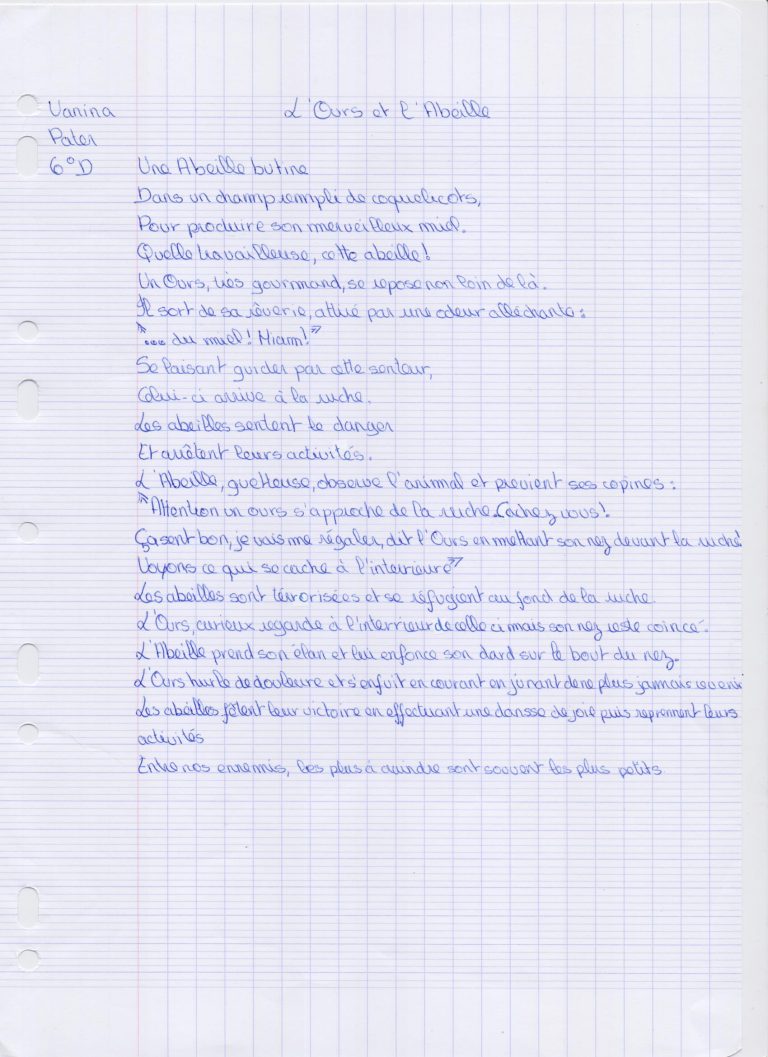 Vanina L'Ours et l'Abeille
Pater
6°D Une Abeille butine
Dans un champ rempli de coquelicots,
Pour produire son merveilleux miel.
Quelle travailleuse, cette abeille !
Un Ours, très gourmand, se repose non loin de là.
Il sort de sa rêverie, attiré par une odeur alléchante :
"... du miel ! Miam !"
Se laisant guider par cette senteur,
Celui-ci arrive à la ruche.
Les abeilles sentent le danger
Et arrêtent leurs activités.
L'Abeille, guetteuse, observe l'animal et previent ses copines :
"Attention un ours s'approche de la ruche. Cachez vous !
Ça sent bon, je vais me régaler, dit l'Ours en mettant son nez devant la ruche.
Voyons ce qui se cache à l'interieure"
Les abeilles sont térrorisées et se réfugient au fond de la ruche.
L'Ours, curieux regarde à l'interrieur de celle ci mais son nez reste coincé.
L'Abeille prend son élan et lui enfonce son dard sur le bout du nez.
L'Ours hurle de douleure et s'enfuit en courant en jurant de ne plus jamais revenir
Les abeilles fêtent leur victoire en effectuant une dansse de joie puis reprennent leurs
activités
Entre nos ennemis, les plus à craindre sont souvent les plus petits